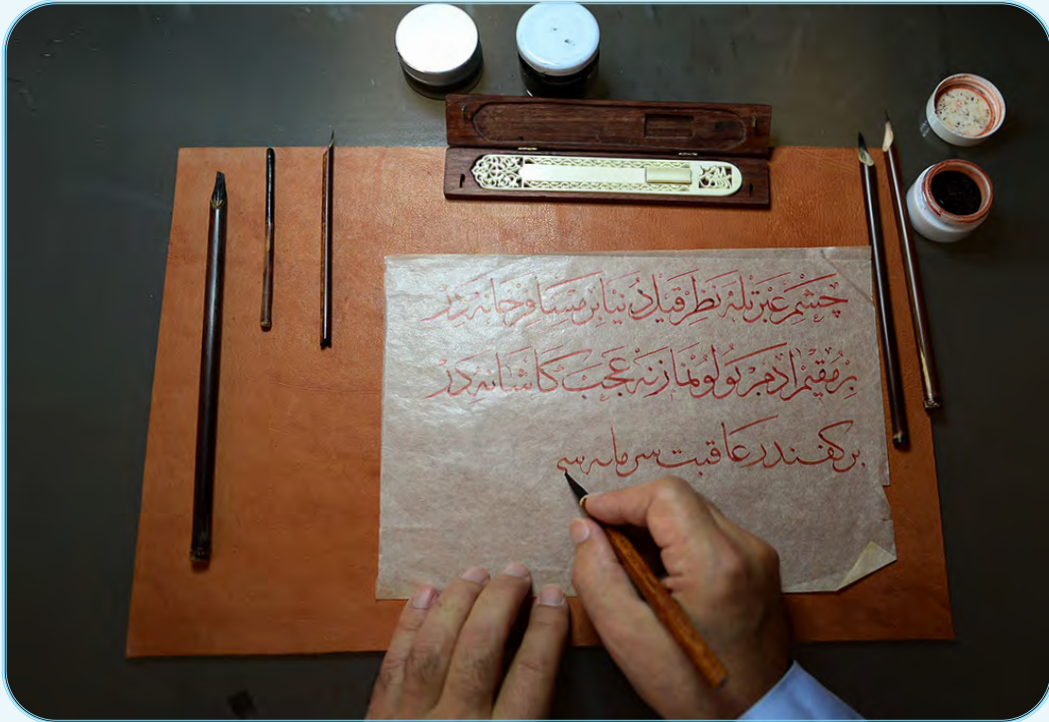 چشم عبرتله نظر قيل دنيا بر مسافرخانه در
بر مقيم ادم بولونماز نه عجب كاشانه در
بر كفندر عاقبت سرمايه سى